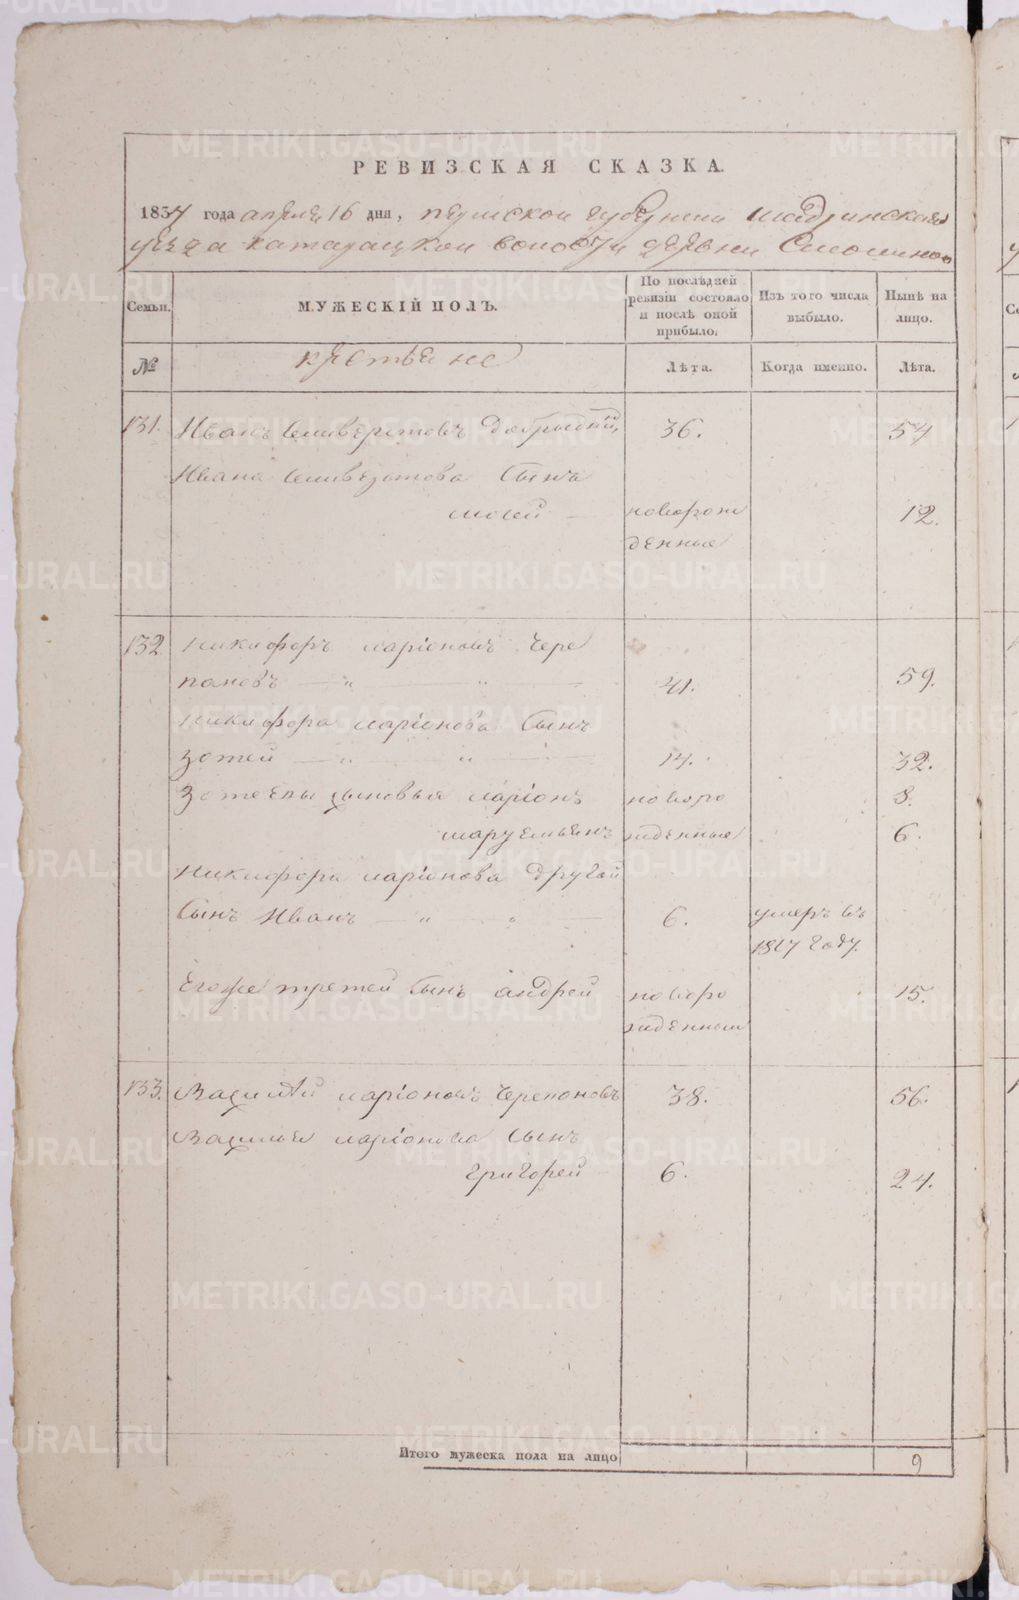 РЕВИЗСКАЯ СКАЗКА.
1834 года апреля 16 дня, пермской губернии шадринскаго
уезда катадацкой волости деревни
Семьи. МУЖЕСКІЙ ПОЛЪ. По послѣдней ревизіи состояло и послѣ оной прибыло. Изъ того числа выбыло. Нынѣ на лицо.
№ крестьяне Лѣта. Когда именно. Лѣта.
131. Иванъ Селиверстовъ 36. 54
Ивана Селиверстова Сынъ
мосей — новорож 12.
денные
132 никифоръ ларіоновъ Чере
пановъ — „ — „ — 41. 59.
никифора ларіонова Сынъ
зотей — „ — „ — 14. 32.
зотеевы сыновья ларіонъ новоро 8.
жденные 6.
никифора ларіонова другой
Сынъ Иванъ — „ — „ — 6. умеръ въ
1817 году.
Егоже третей Сынъ андрей новоро 15.
жденный
133. Василий ларіоновъ Черепоновъ 38. 56.
Василья ларіонова Сынъ
григорей — 6. 24.
Итого мужеска пола на лицо 9
METRIKI.GASO-URAL.RU